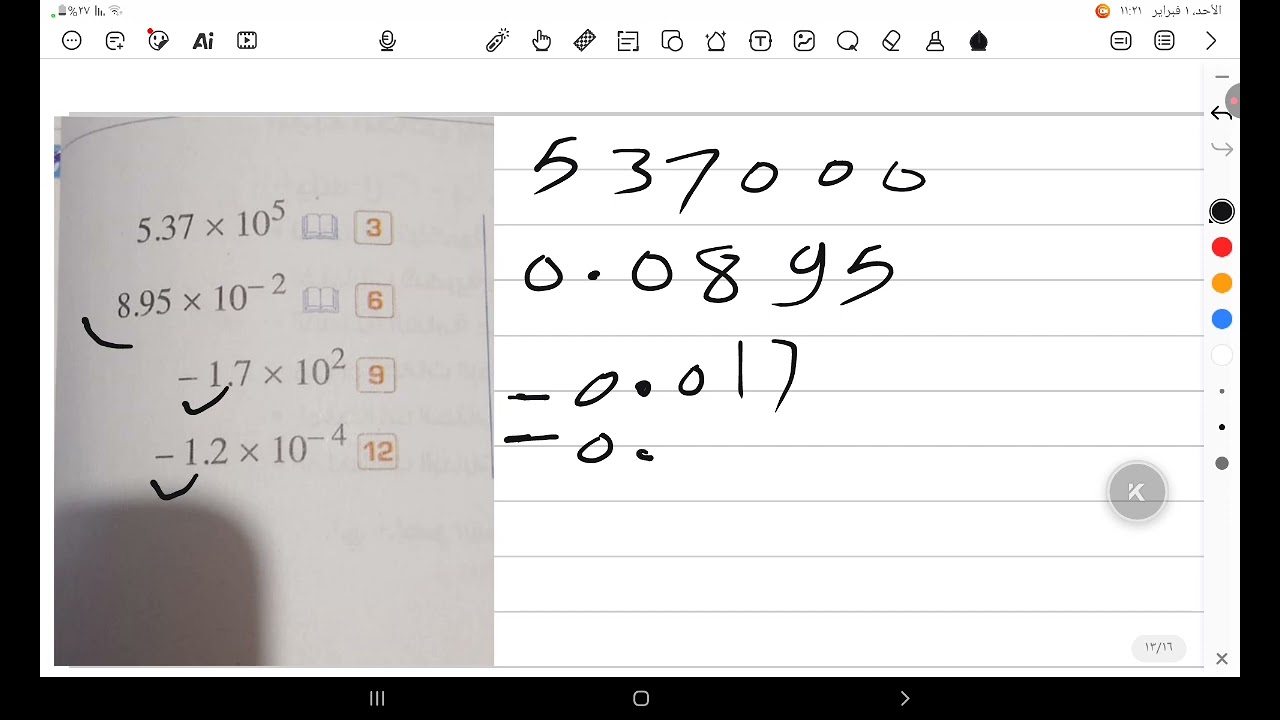 ٪٢٧
الأحد، ١ فبراير ١١:٢١
Ai
T
5.37 × 10⁵ 3
8.95 × 10⁻² 6
− 1.7 × 10² 9
− 1.2 × 10⁻⁴ 12
537000
0.0895
− 0.017
− 0.
K
١٣/١٦